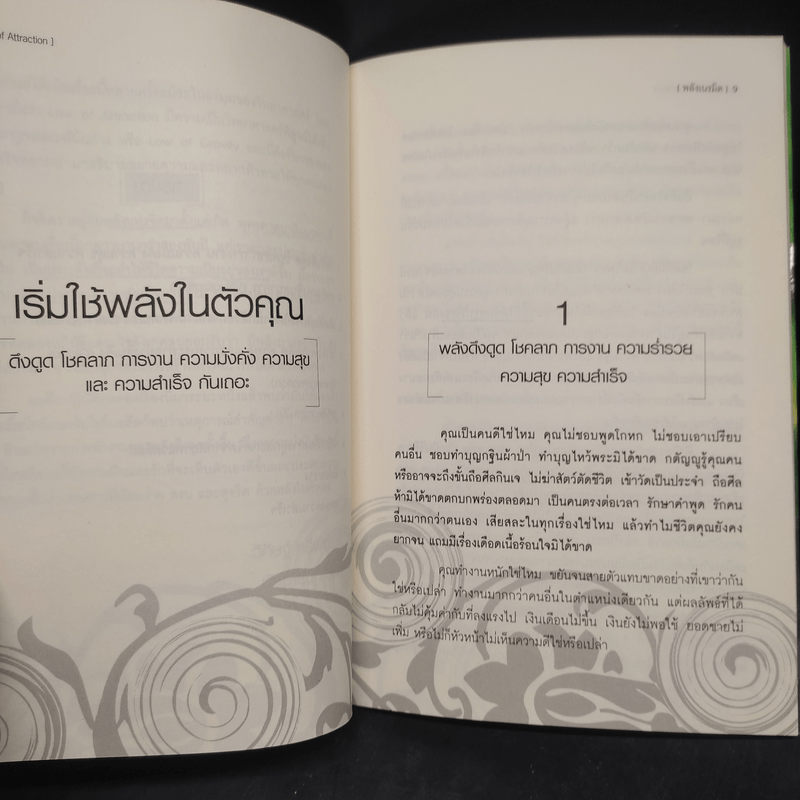 of Attraction ]
เริ่มใช้พลังในตัวคุณ
ดึงดูด โชคลาภ การงาน ความมั่งคั่ง ความสุข
และ ความสำเร็จ กันเถอะ
[ พลังเนรมิต ] 9
1
พลังดึงดูด โชคลาภ การงาน ความร่ำรวย
ความสุข ความสำเร็จ
คุณเป็นคนดีใช่ไหม คุณไม่ชอบพูดโกหก ไม่ชอบเอาเปรียบ
คนอื่น ชอบทำบุญกฐินผ้าป่า ทำบุญไหว้พระมิได้ขาด กตัญญูรู้คุณคน
หรืออาจจะถึงขั้นถือศีลกินเจ ไม่ฆ่าสัตว์ตัดชีวิต เข้าวัดเป็นประจำ ถือศีล
ห้ามิได้ขาดตกบกพร่องตลอดมา เป็นคนตรงต่อเวลา รักษาคำพูด รักคน
อื่นมากกว่าตนเอง เสียสละในทุกเรื่องใช่ไหม แล้วทำไมชีวิตคุณยังคง
ยากจน แถมมีเรื่องเดือดเนื้อร้อนใจมิได้ขาด
คุณทำงานหนักใช่ไหม ขยันจนสายตัวแทบขาดอย่างที่เขาว่ากัน
ใช่หรือเปล่า ทำงานมากกว่าคนอื่นในตำแหน่งเดียวกัน แต่ผลลัพธ์ที่ได้
กลับไม่คุ้มค่ากับที่ลงแรงไป เงินเดือนไม่ขึ้น เงินยังไม่พอใช้ ยอดขายไม่
เพิ่ม หรือไม่ก็หัวหน้าไม่เห็นความดีใช่หรือเปล่า